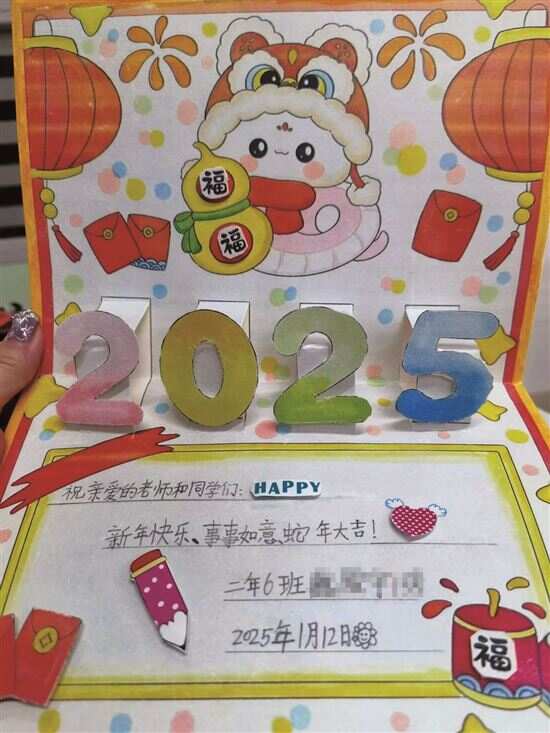 福
福
2025
祝亲爱的老师和同学们: HAPPY
新年快乐、事事如意,蛇年大吉!
二年6班
2025年1月12日
福